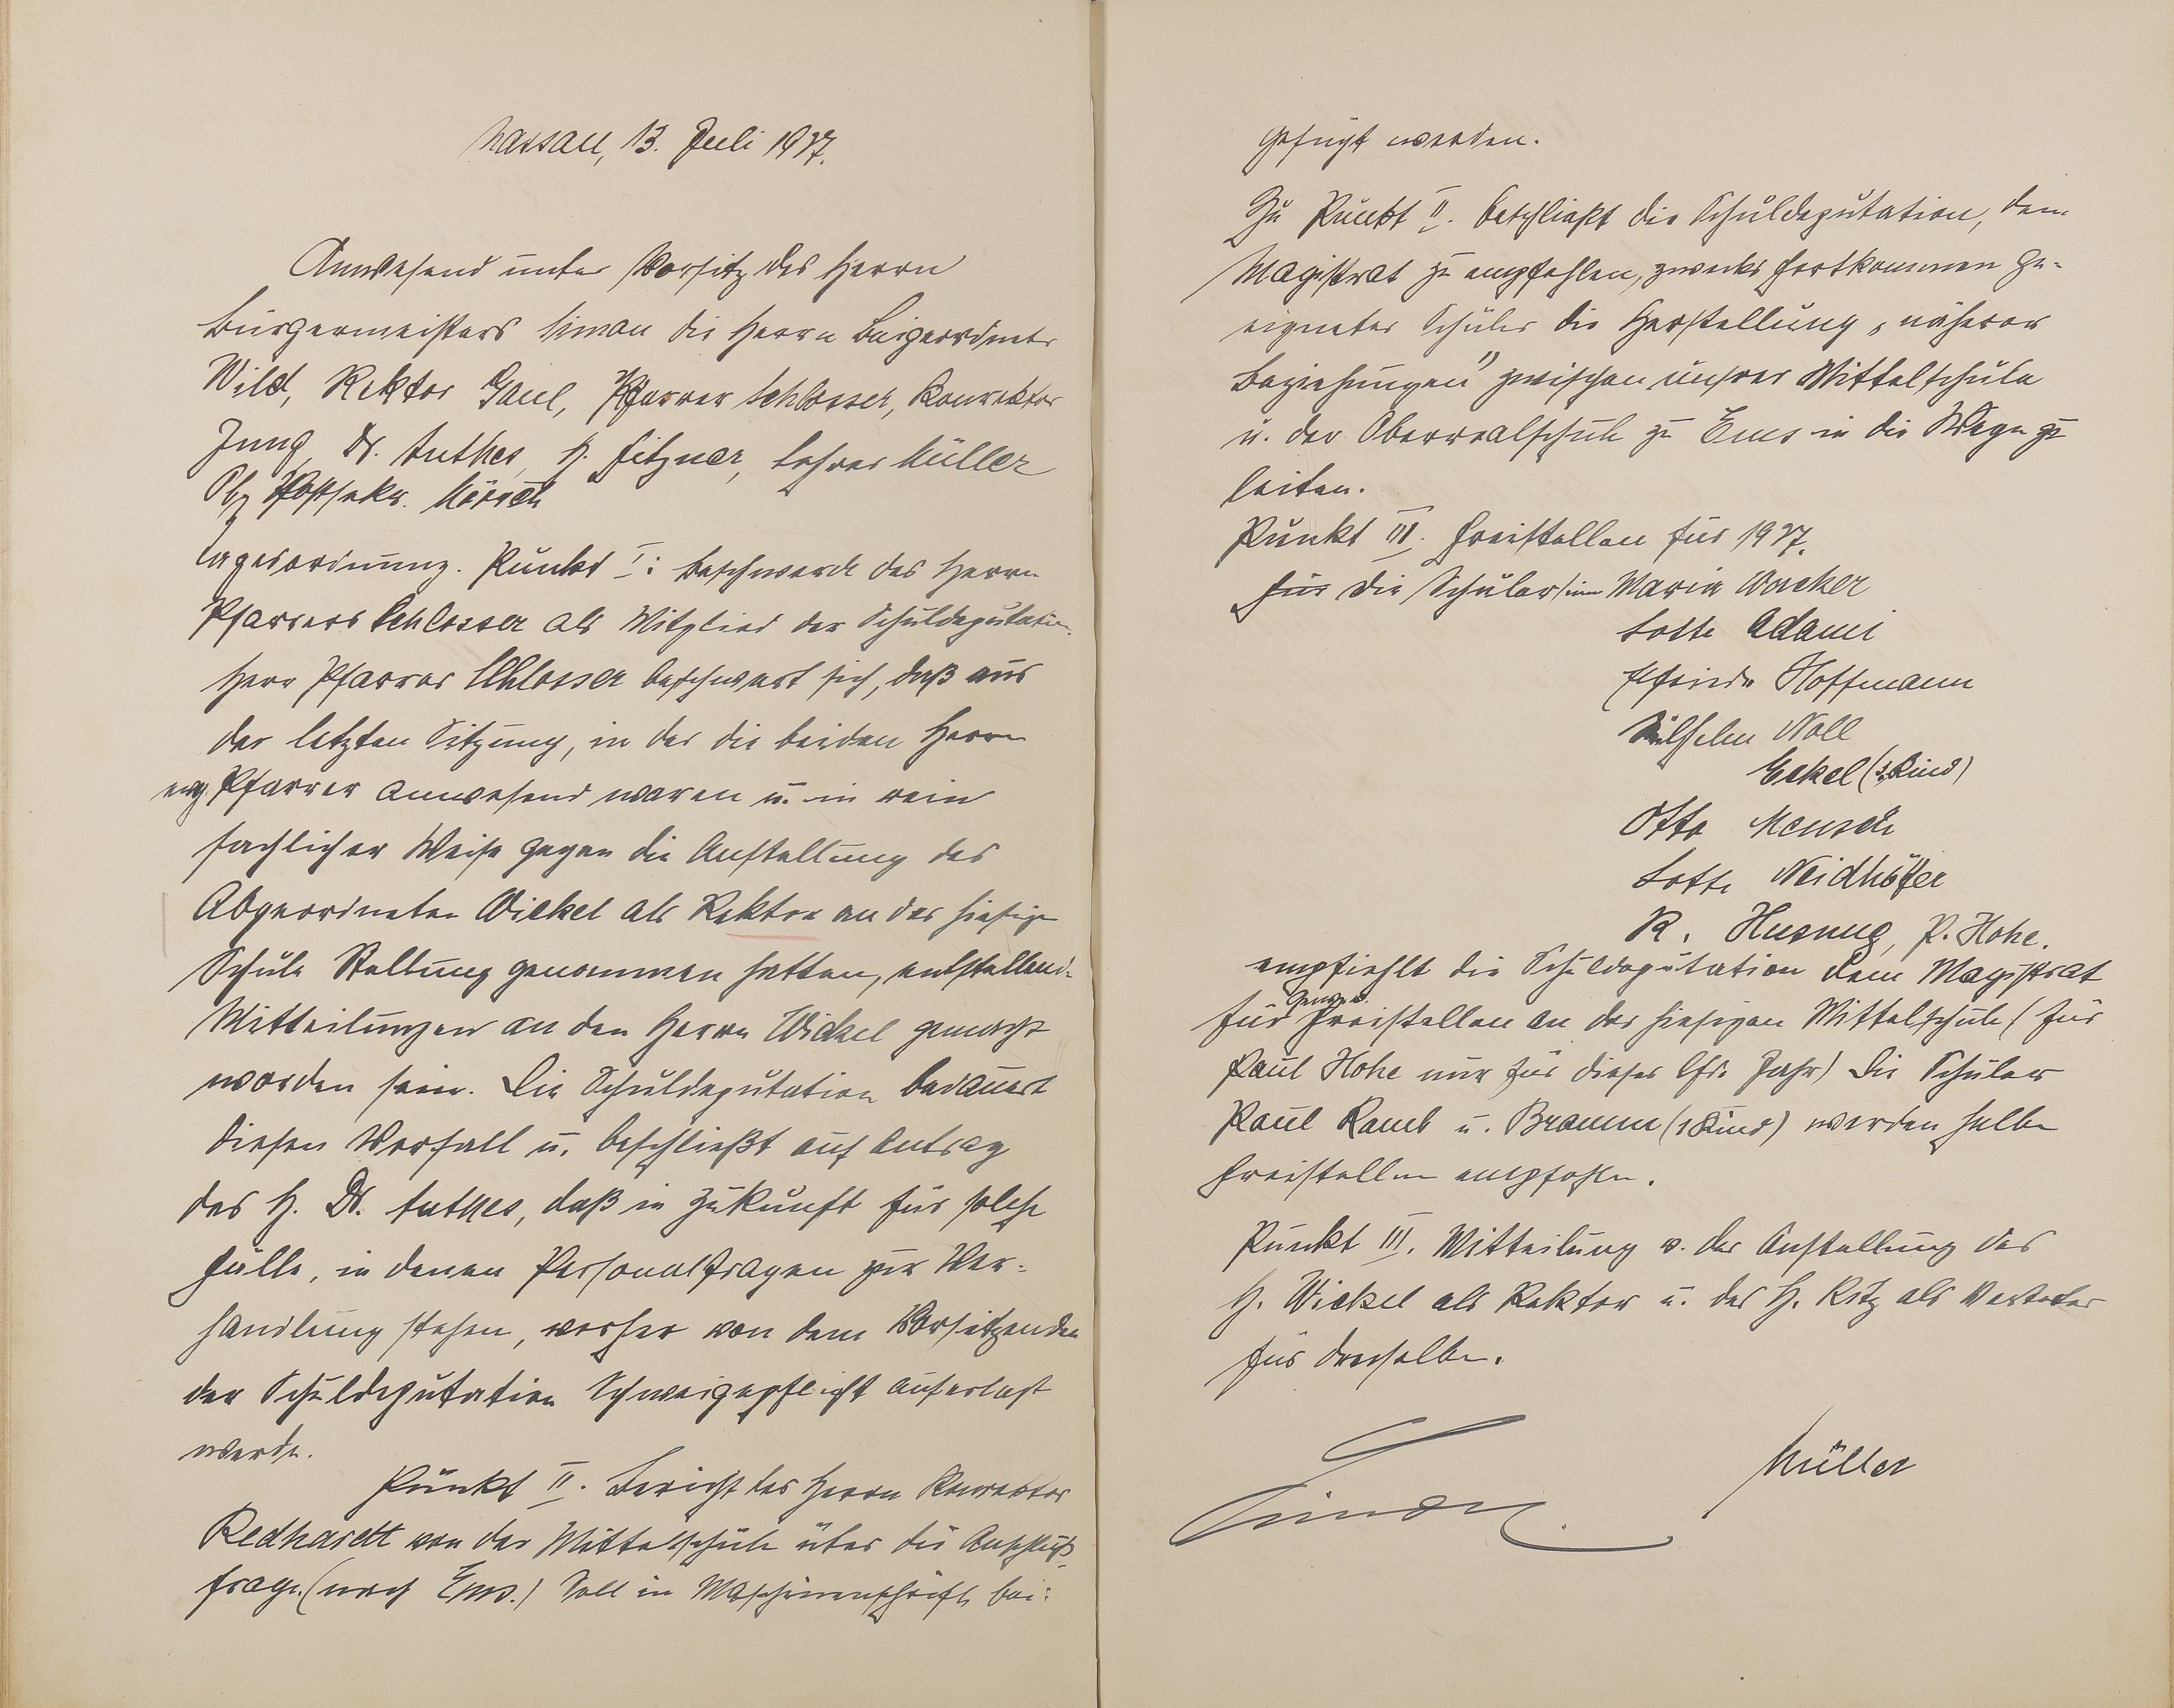 Nassau, 13. Juli 1927.
Anwesend unter Vorsitz des Herrn
Bürgermeisters Simon die Herrn Beigeordnete
Wild, Rektor Gaul, Pfarrer Schlosser, Konrektor
Jung, Dr. Anthes, H. Fitzner, Lehrer Müller
Obpostsekr. Mörsch
Tagesordnung. Punkt I: Beschwerde des Herrn
Pfarrers Schlosser als Mitglied der Schuldeputation.
Herr Pfarrer Schlosser beschwert sich, daß aus
der letzten Sitzung, in der die beiden Herrn
evg. Pfarrer anwesend waren u. in rein
sachlicher Weise gegen die Anstellung des
Abgeordneten Wickel als Rektor an der hiesigen
Schule Stellung genommen hatten, entstellende
Mitteilungen an den Herrn Wickel gemacht
worden seien. Die Schuldeputation bedauert
diesen Vorfall u. beschließt auf Antrag
des H. Dr. Anthes, daß in Zukunft für solche
Fälle, in denen Personalfragen zur Ver-
handlung stehen, vorher von dem Vorsitzenden
der Schuldeputation Schweigepflicht auferlegt
werde.
Punkt II. Bericht des Herrn Konrektor
Redhardt von der Mittelschule über die Anschluß-
frage (nach Ems.) Soll in Maschinenschrift bei-
gefügt werden.
Zu Punkt II. beschließt die Schuldeputation, dem
Magistrat zu empfehlen, zwecks Fortkommen ge-
eigneter Schüler die Herstellung „näherer
Beziehungen" zwischen unserer Mittelschule
u. der Oberrealschule zu Ems in die Wege zu
leiten.
Punkt III. Freistellen für 1927.
für die Schüler/innen Maria Wacker
Lotte Adami
Elfriede Hoffmann
Wilhelm Noll
Eckel (3. Kind)
Otto Mensch
Lotte Neidhöfer
R. Husung, P. Hohe.
empfiehlt die Schuldeputation dem Magistrat
für ganze Freistellen an der hiesigen Mittelschule (für
Paul Hohe nur für dieses lfd. Jahr) Die Schüler
Paul Raub u. Bramm (1 Kind) werden halbe
Freistellen empfohlen.
Punkt III. Mitteilung v. der Anstellung des
H. Wickel als Rektor u. des H. Ritz als Vertreter
für denselben.
Simon. Müller